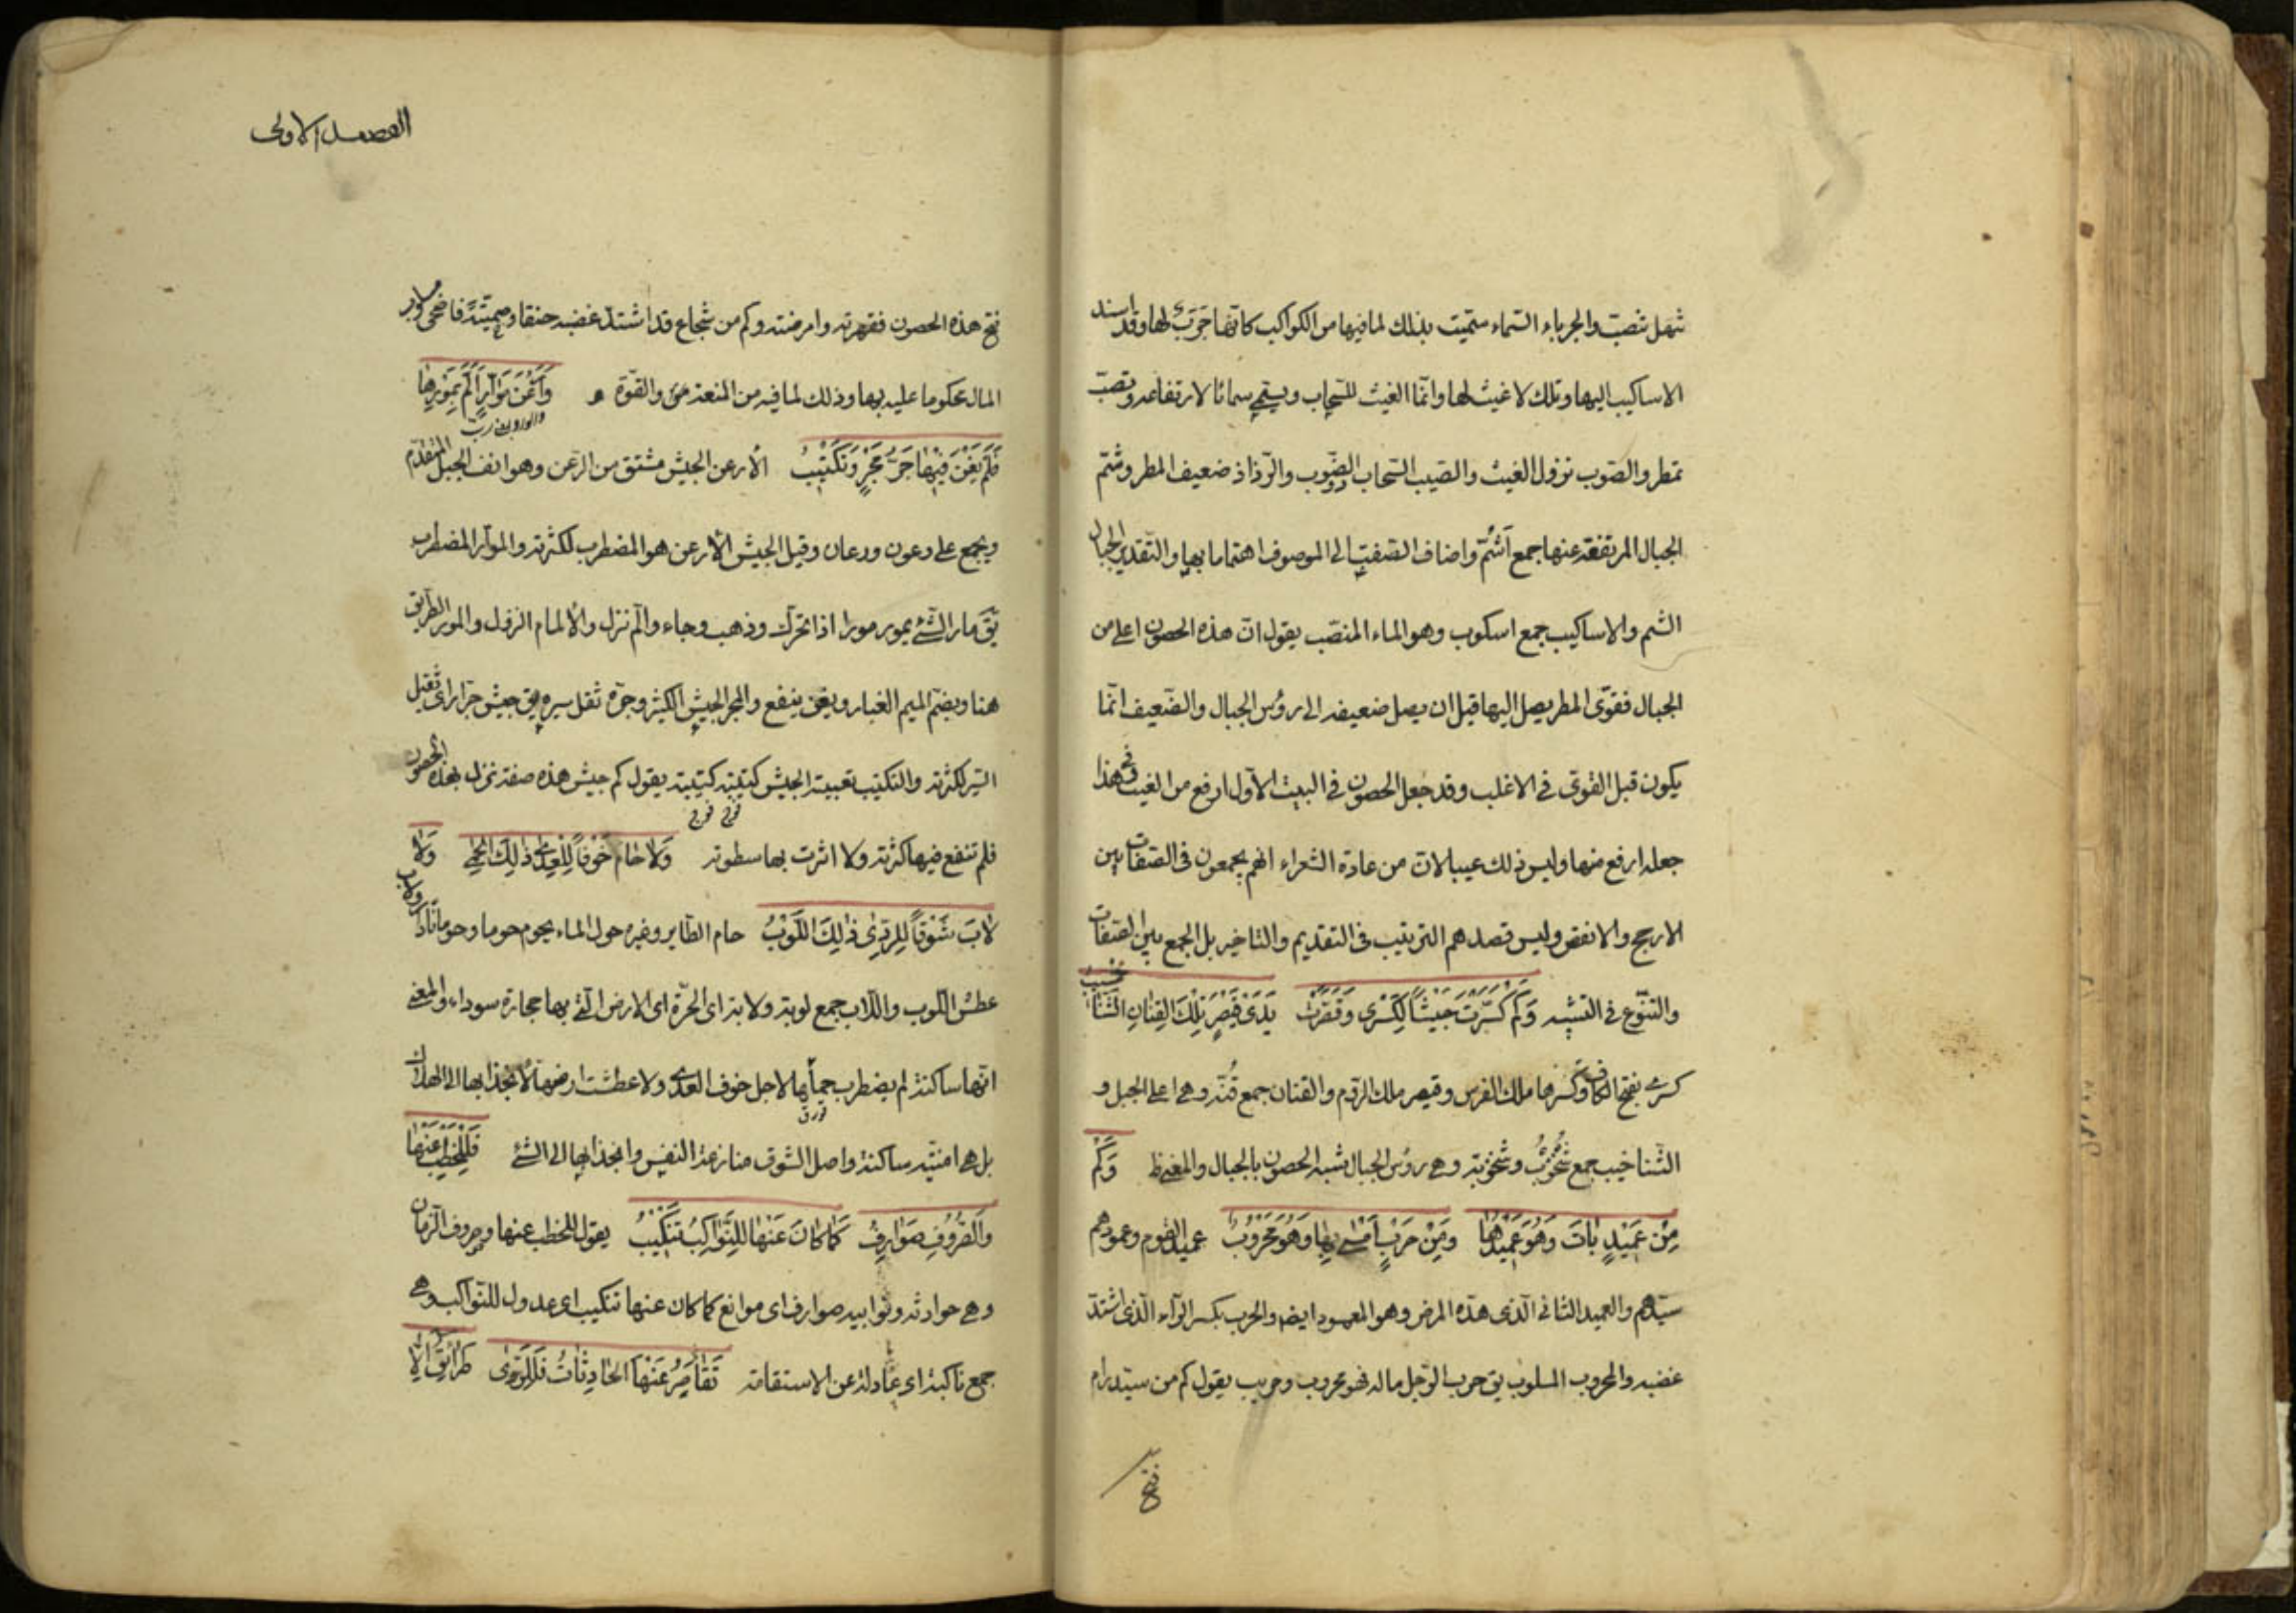 تنهل تنصبّ والجرباء السّماء سمّيت بذلك لما فيها من الكواكب كانّها جَرَبٌ لها وقد اسند
الاساكيب اليها وتلك لا غيث لها وانّما الغيث للسّحاب ويسمّى سمائا لارتفاعه وتصبّ
تمطر والصّوب نزول الغيث والصّيب السّحاب الصّيوب والرّذاذ ضعيف المطر وشمّ
الجبال المرتفعة عنها جمع اَشمّ واضاف الصّفة الى الموصوف اهتماما بها والتّقدير الجبال
الشم والاساكيب جمع اسكوب وهو الماء المنصّب يقول انّ هذه الحصون اعلى من
الجبال فقوّى المطر يصل اليها قبل ان يصل ضعيفه الى رؤس الجبال والضّعيف انّما
يكون قبل القوىّ فى الاغلب وقد جعل الحصون فى البيت الاوّل ارفع من الغيث وفى هذا
جعله ارفع منها وليس ذلك عيبا لانّ من عادة الشعراء انهم يجمعون فى الصّفات بين
الارجح والانقص وليس قصدهم الترتيب فى التقديم والتاخير بل الجمع بين الصّفات
والتنوّع فى التشبيه وَكَمْ كَسَّرَتْ جَيْشًا لِكَسْرى وَقَصَّرَتْ يَدَىْ قَيْصَرٍ تِلْكَ القِنانِ الشَّناخيبُ
كسرى بفتح الكاف وكسرها ملك الفرس وقيصر ملك الرّوم والقنان جمع قُنّة وهى اعلى الجبل و
الشّناخيب جمع شُخْنُوب وشخنوبة وهى رؤس الجبال شبه الحصون بالجبال والمعنى ظ وَكَمْ
مِنْ عَميدٍ باتَ وَهُوَ عَميدُها وَمِنْ حَرِبٍ اَمْسى بِها وَهُوَ مَحْرُوبُ عميد القوم وعمودهم
سيّدهم والعميد الثانى الّذى هدّه المرض وهو المعمود ايضا والحرب بكسر الرّاء الّذى اشتدّ
غضبه والمحروب المسلوب يق حرب الرّجل ماله فهو محروب وحريب يقول كم من سيّد رام
فتح
الفصل الاولى
فتح هذه الحصون فقهرته وامرضته وكم من شجاع قد اشتدّ غضبه حنقا وحميّة فاضحى مسلوب
المال محكوما عليه بها وذلك لما فيه من المنعة والقوّة وَاَرْعَنَ مَوّارٍ اَلَمَّ بِمَوْرِها
فَلَمْ يُغْنِ فيها جَرُّ مَجْرٍ وَتَكْتيبُ الأرعن الجيش مشتق من الرّعن وهو انف الجبل المتقدّم
ويجمع على رعون ورعان وقيل الجيش الأرعن هو المضطرب لكثرته والموّار المضطرب
يقَ مار الشّئ يمور مورا اذا تحرّك وذهب وجاء والَمّ نزل والألمام النزول والمور الطّريق
هنا وبضمّ الميم الغبار ويغن ينفع والمجر الجيش الكثير وجرّه ثقل سيره يق جيش جرّار اى ثقيل
السّير لكثرته والتكتيب تعبية الجيش كتيبة كتيبة يقول كم جيش هذه صفته نزل بهذه الحصون
فوج فوج
فلم تنفع فيها كثرته ولا اثرت بها سطوته وَلا حامَ خَوْفًا لِلْعِدى ذلِكَ الحِمى وَلا
لابَ شَوْقًا لِلرَّدى ذلِكَ اللُّوبُ حام الطّاير وغيره حول الماء يحوم حوما وحومانا دار ولاب
عطش اللّوب واللّاب جمع لوبة ولابة اى الحرّة اى الارض الّتى بها حجارة سوداء والمعنى
انّها ساكنة لم يضطرب حماها لاجل خوف العدى ولا عطشت ارضها لانجذابها الى الهلاك
بل هى امنيّة ساكنة واصل الشّوق منازعة النفس وانجذابها الى الشئ فَلِلْخَطْبِ عَنْها
وَالصُّرُوفِ صَوارِفٌ كَما كانَ عَنْها لِلنَّواكِبِ تَنْكيبُ يقول للخطب عنها وصروف الزّمان
وهى حوادثه ونوائبه صوارف اى موانع كما كان عنها تنكيب اى عدول للنّواكب وهى
جمع ناكبة اى عادلة عن الاستقامة تَقاصَرُ عَنْها الحادِثاتُ فَلِلرَّدى طَرائِقُ اِلّا